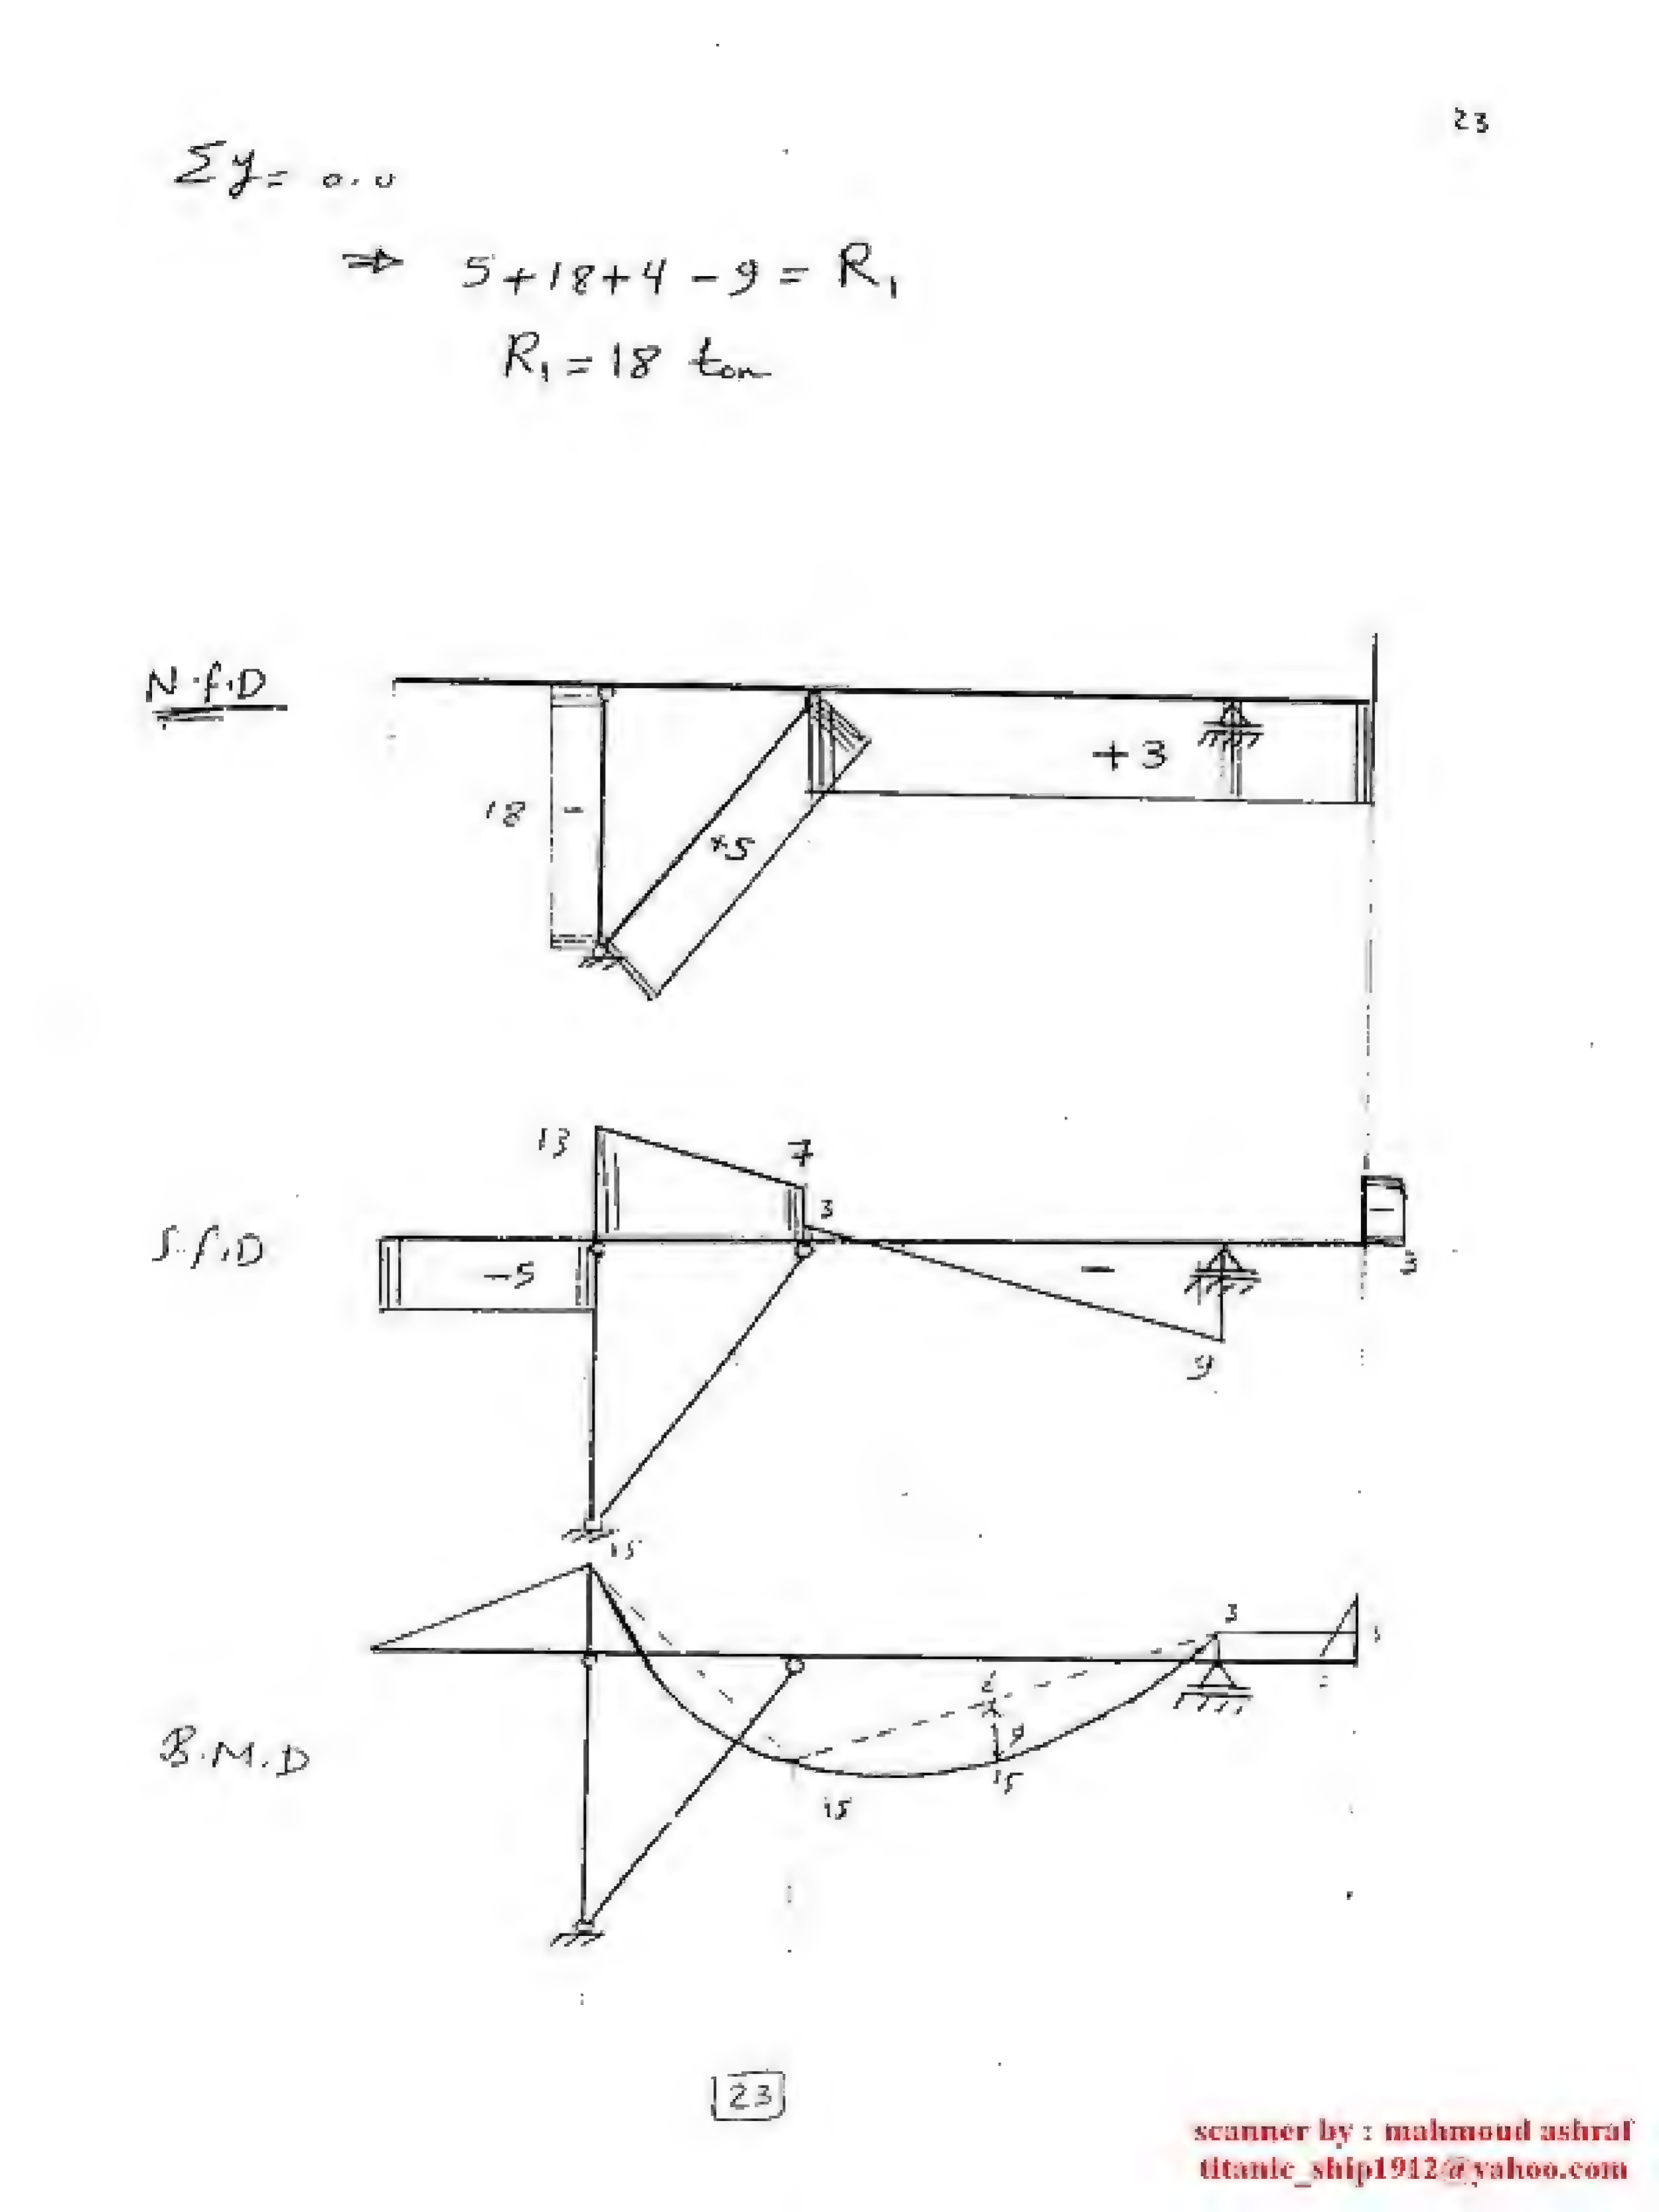 23
Σy= 0.0
⇒ 5+18+4-9= R₁
R₁=18 ton
N.f.D
+3
18 -
+5
13
7
3
S.f.D
-5
-
-
3
9
15
3
9
15
B.M.D
15
23
scanner by : mahmoud ashraf
titanic_ship1912@yahoo.com